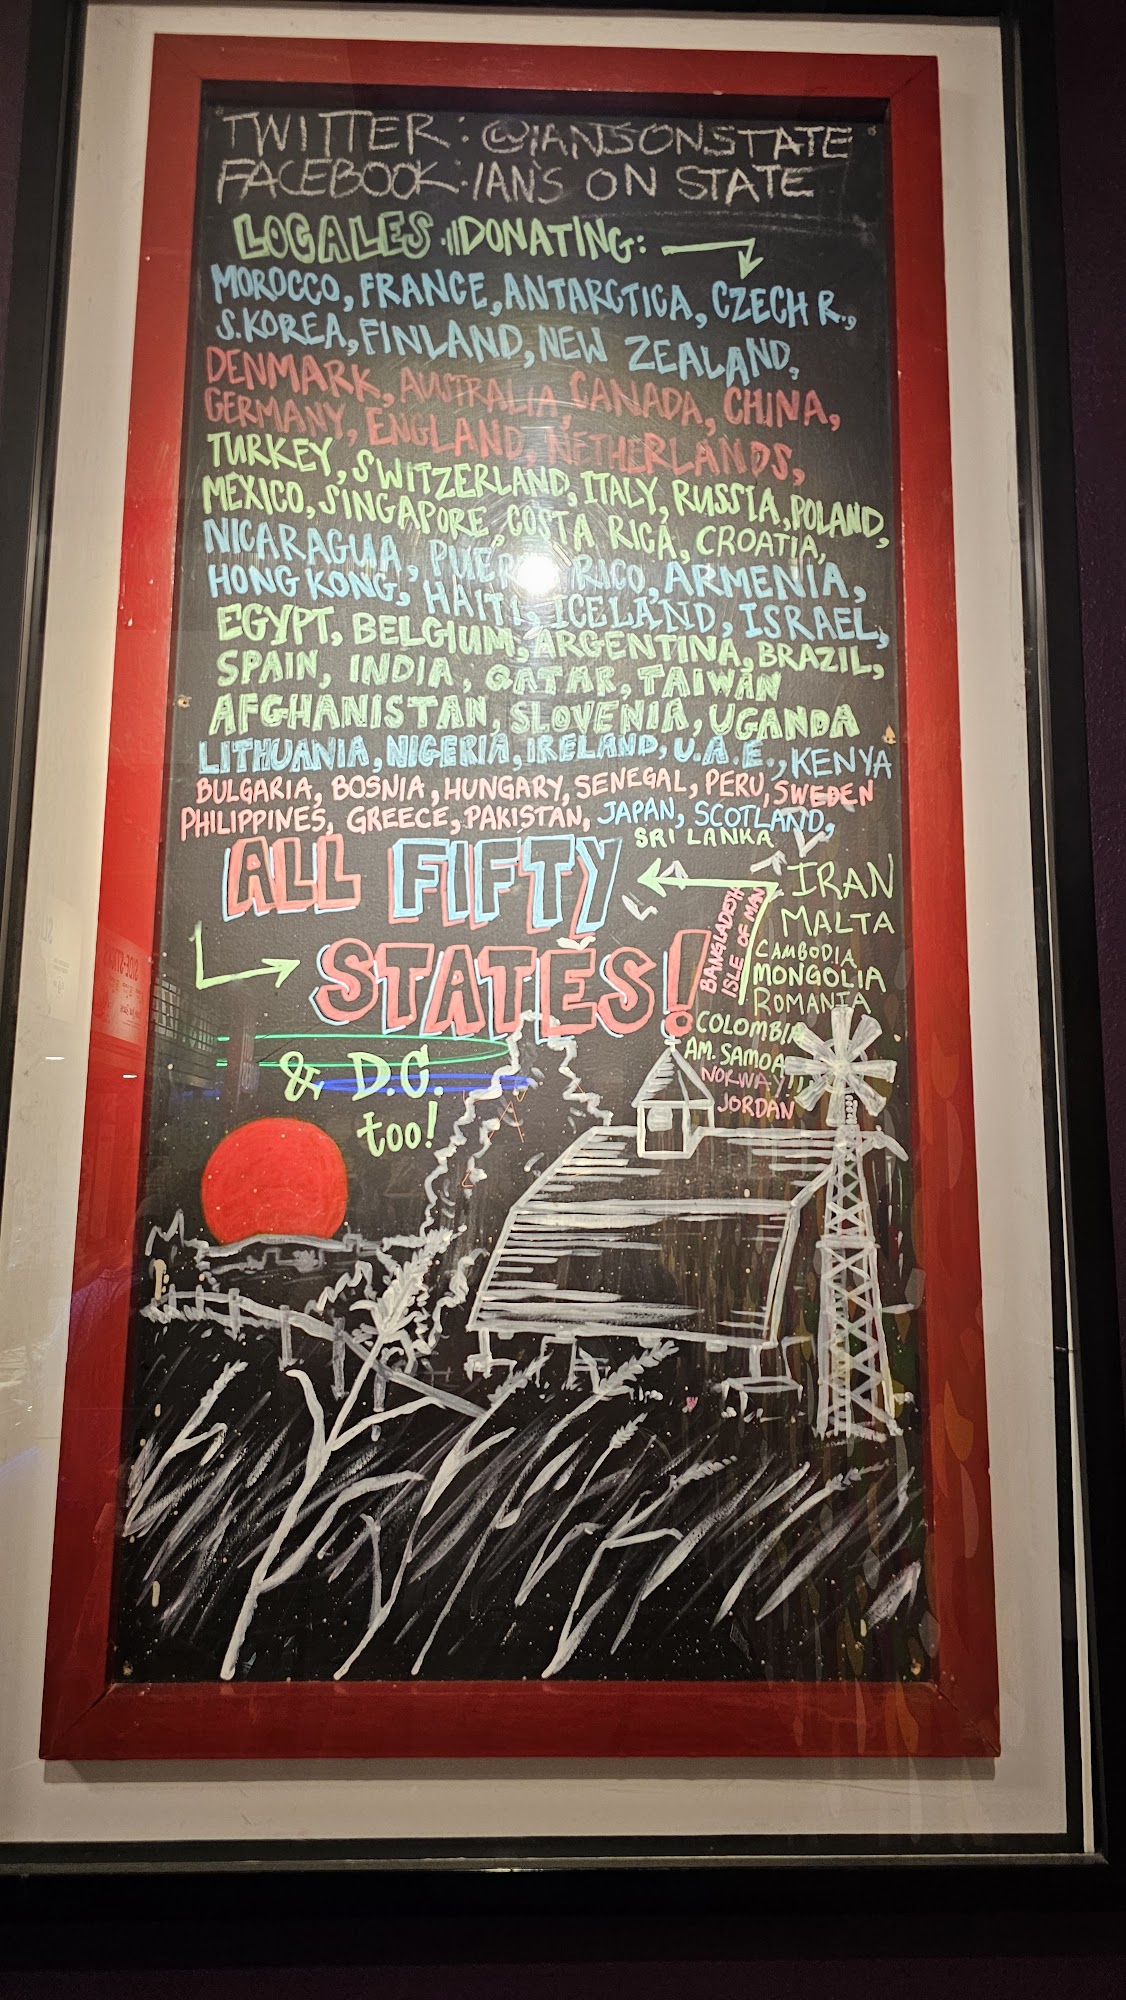 TWITTER: @IANSONSTATE
FACEBOOK: IAN'S ON STATE
LOCALES DONATING:
MOROCCO, FRANCE, ANTARCTICA, CZECH R.,
S. KOREA, FINLAND, NEW ZEALAND,
DENMARK, AUSTRALIA, CANADA, CHINA,
GERMANY, ENGLAND, NETHERLANDS,
TURKEY, SWITZERLAND, ITALY, RUSSIA, POLAND,
MEXICO, SINGAPORE, COSTA RICA, CROATIA,
NICARAGUA, PUERTO RICO, ARMENIA,
HONG KONG, HAITI, ICELAND, ISRAEL,
EGYPT, BELGIUM, ARGENTINA, BRAZIL,
SPAIN, INDIA, QATAR, TAIWAN
AFGHANISTAN, SLOVENIA, UGANDA
LITHUANIA, NIGERIA, IRELAND, U.A.E., KENYA
BULGARIA, BOSNIA, HUNGARY, SENEGAL, PERU, SWEDEN
PHILIPPINES, GREECE, PAKISTAN, JAPAN, SCOTLAND,
SRI LANKA
ALL FIFTY
STATES!
BANGLADESH
ISLE OF MAN
IRAN
MALTA
CAMBODIA
MONGOLIA
ROMANIA
COLOMBIA
AM. SAMOA
NORWAY!!
JORDAN
& D.C.
too!